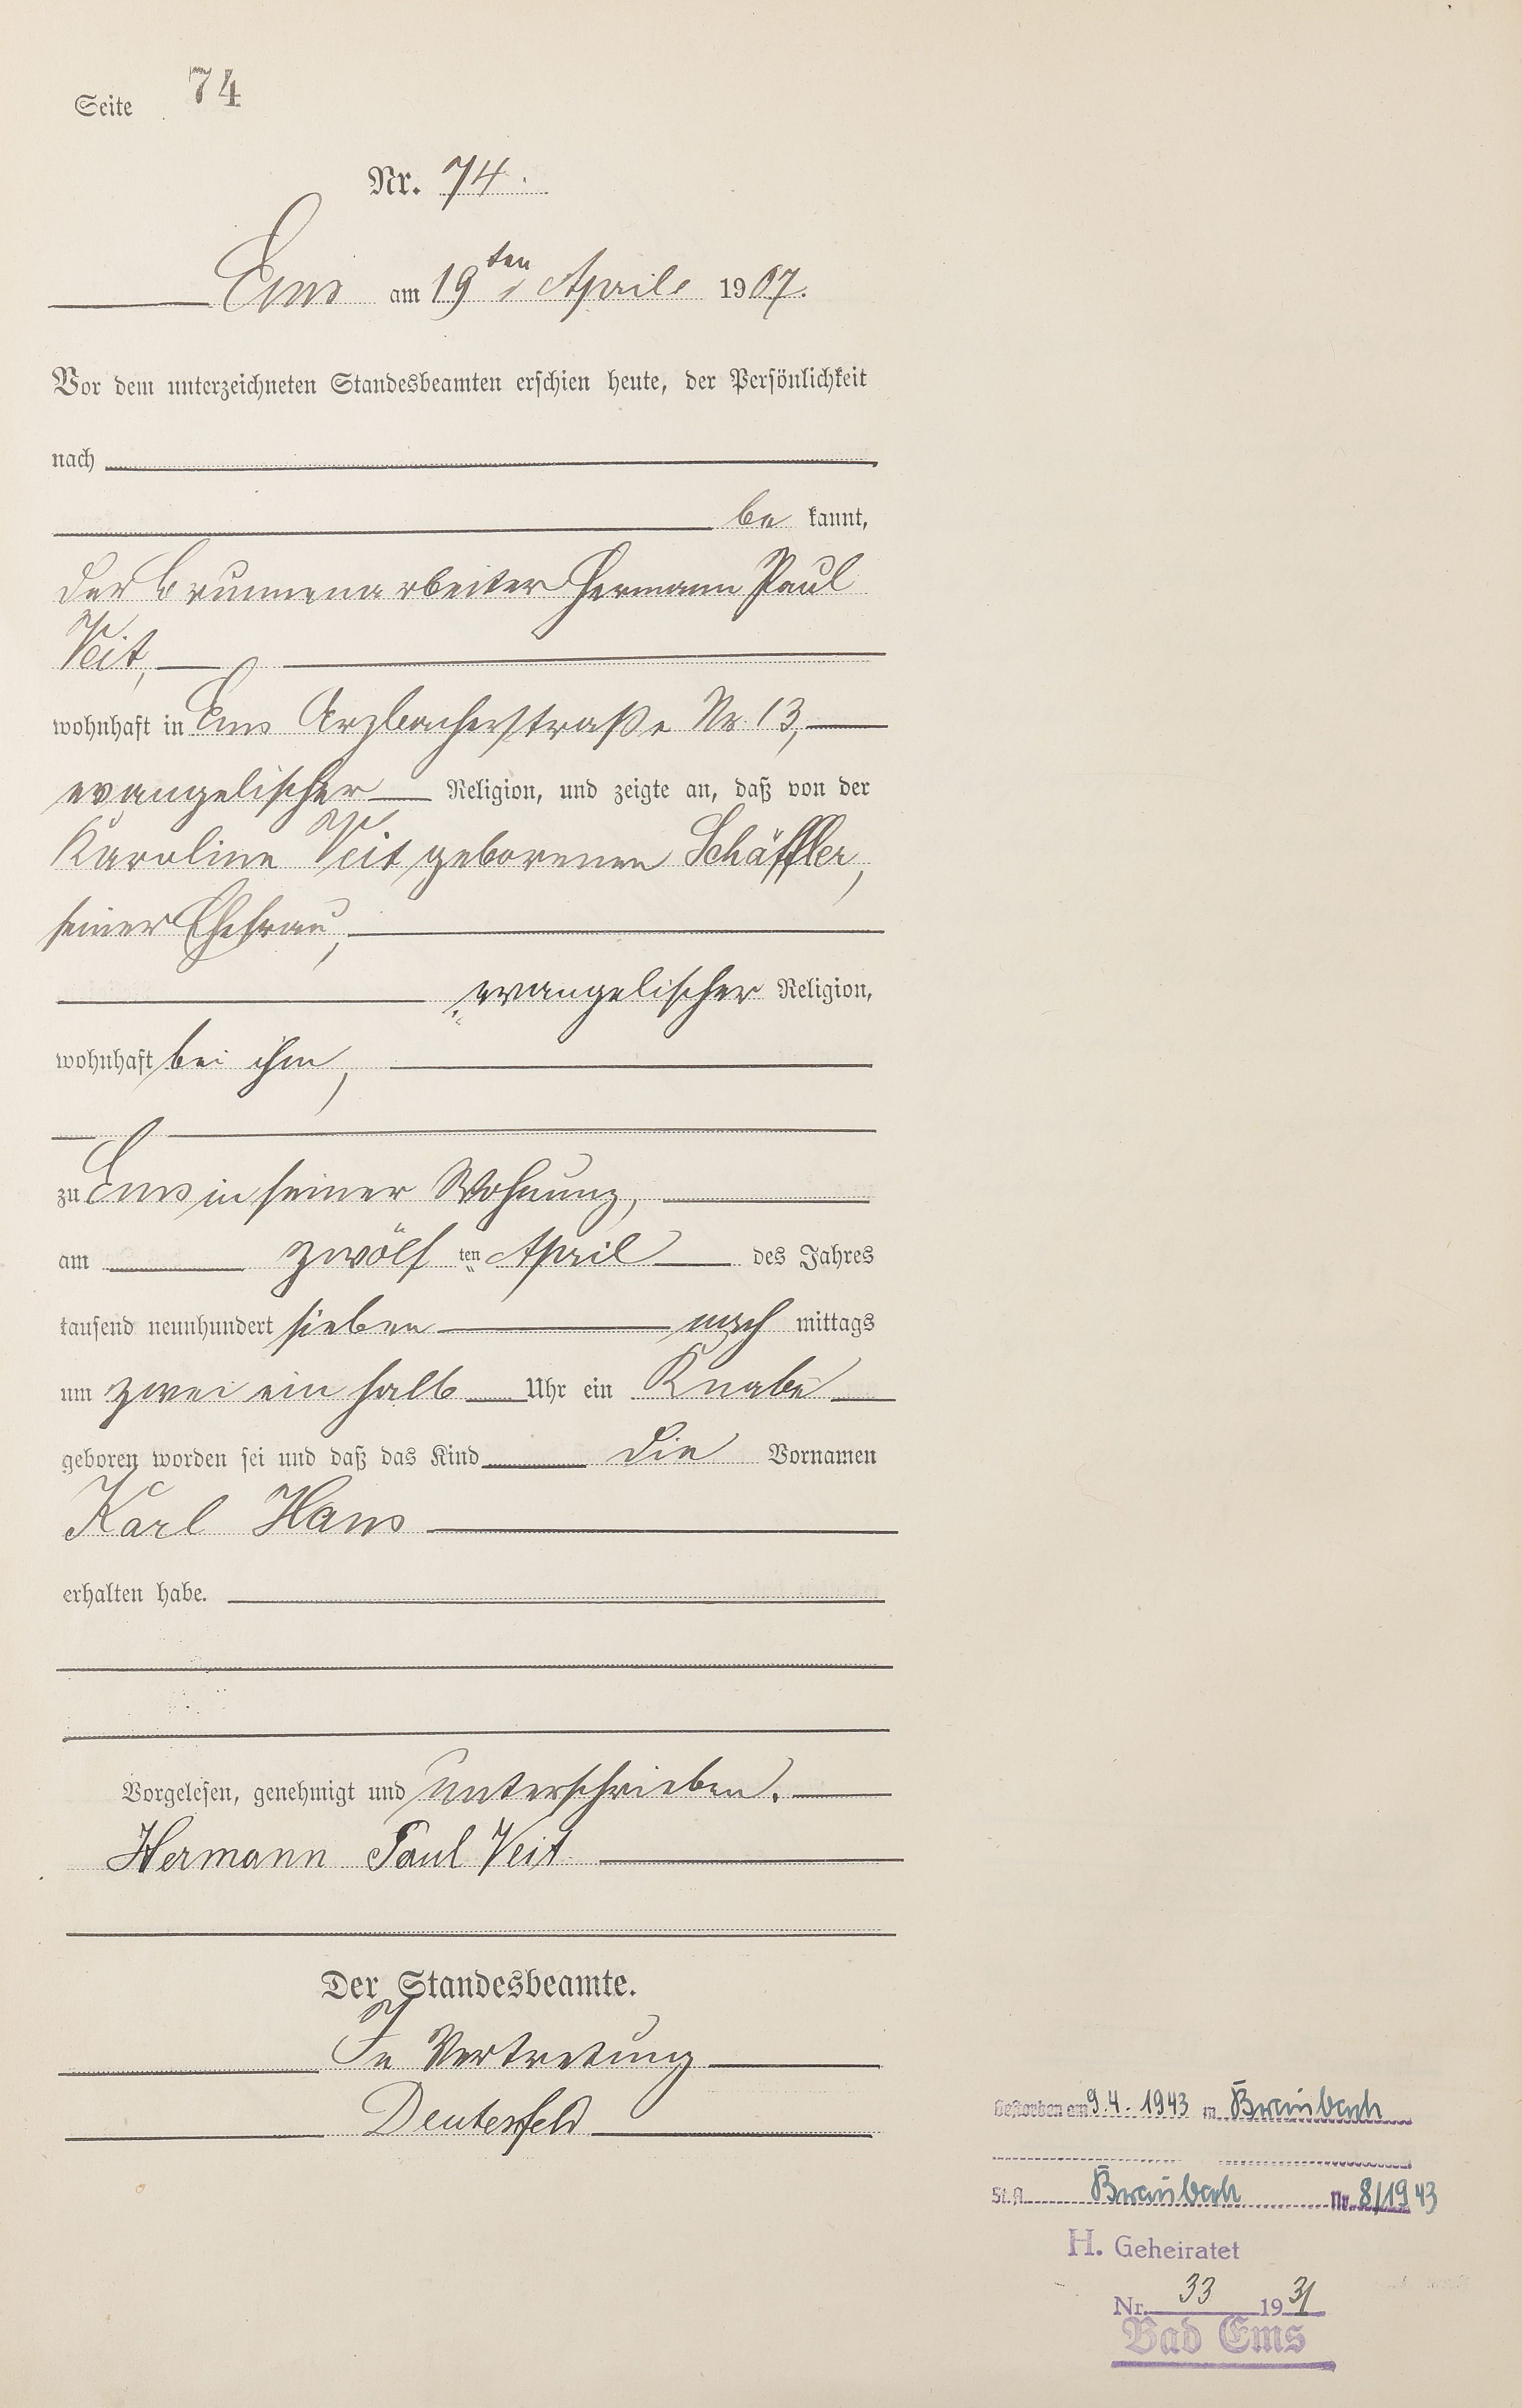 Seite 74
Nr. 74.
Ems am 19ten April 1907.
Vor dem unterzeichneten Standesbeamten erschien heute, der Persönlichkeit
nach
be kannt,
der Brunnenarbeiter Hermann Paul
Veit,
wohnhaft in Ems Arzbacherstraße Nr. 13,
evangelischer Religion, und zeigte an, daß von der
Karoline Veit geborenen Schäffler,
seiner Ehefrau,
evangelischer Religion,
wohnhaft bei ihm,
zu Ems in seiner Wohnung,
am zwölf ten April des Jahres
tausend neunhundert sieben nach mittags
um zwei ein halb Uhr ein Knabe
geboren worden sei und daß das Kind die Vornamen
Karl Hans
erhalten habe.
Vorgelesen, genehmigt und unterschrieben.
Hermann Paul Veit
Der Standesbeamte.
In Vertretung
Deutesfeld
Gestorben am 9.4.1943 in Braubach
St.A. Braubach Nr. 8/1943
H. Geheiratet
Nr. 33 1931
Bad Ems